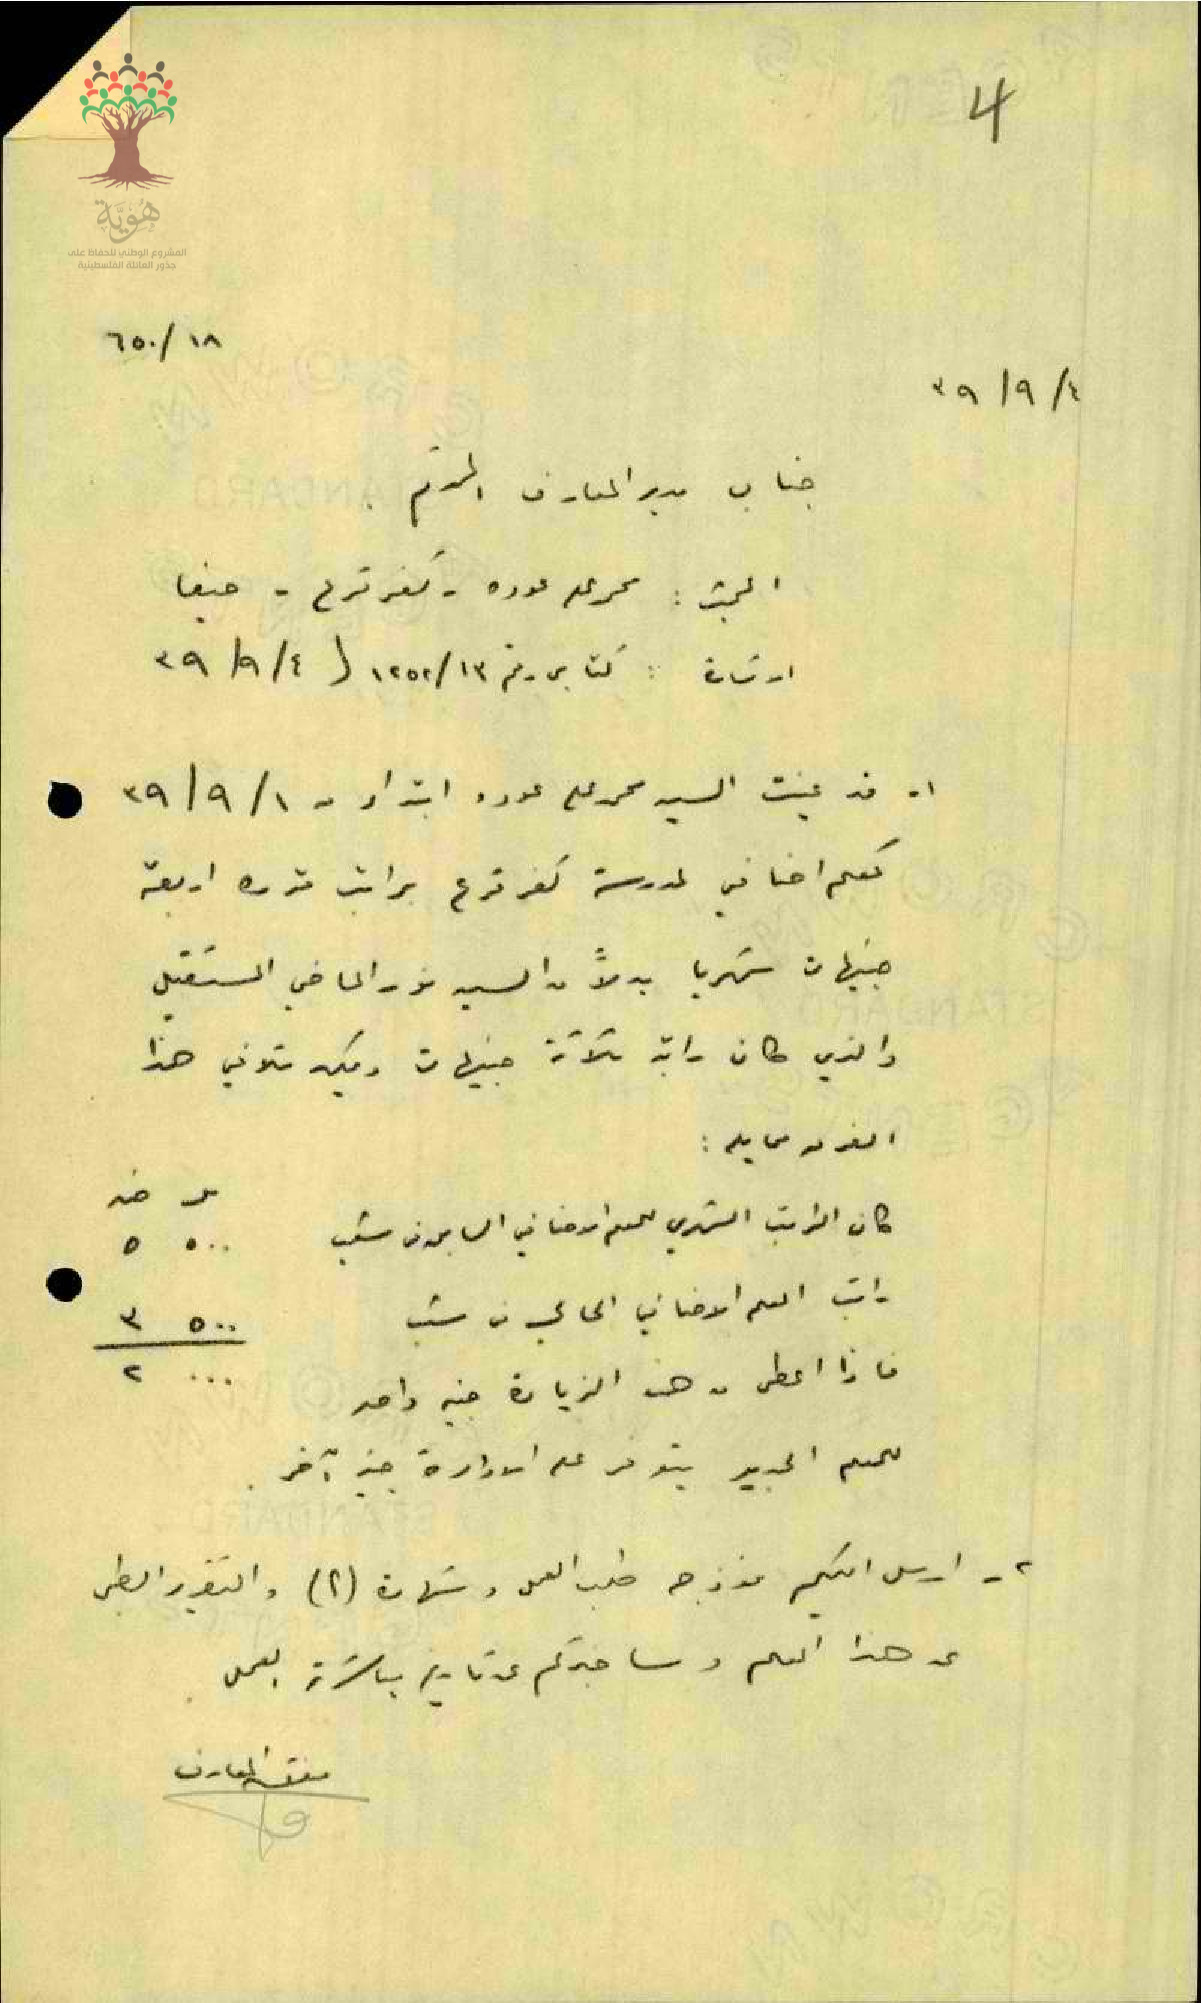 4
هُوِيَّة
المشروع الوطني للحفاظ على
جذور العائلة الفلسطينية
٦٥٠/١٨
٣٩/٩/٤
جناب مدير المعارف المحترم
المبحث : محمد علي عوده - كفر قرع - حيفا
اشارة : كتابي رقم ١٢٥٢/١٣ ٣٩/٩/٤
١- قد عينت السيد محمد علي عوده ابتداء من ٣٩/٩/١
كمعلم اضافي لمدرسة كفر قرع براتب قدره اربعة
جنيهات شهريا بدلاً من السيد الماضي المستقيل
والذي كان راتبه ثلاثة جنيهات ويمكن تلافي هذا
الفرق مما يلي :
مل جنيه
كان الراتب الشهري للمعلم الاضافي السابق في شعب ٥٠٠ ٥
راتب المعلم الاضافي الحالي في شعب ٥٠٠ ٣
٠٠٠ ٢
فاذا اعطي من هذه الزيادة جنيه واحد
للمعلم الجديد يتوفر على الادارة جنيه آخر .
٢- ارسل اليكم نموذج طلب العمل وشهادة (٢) والتقرير الطبي
عن هذا المعلم وساخبركم عن تاريخ مباشرته العمل .
مفتش المعارف